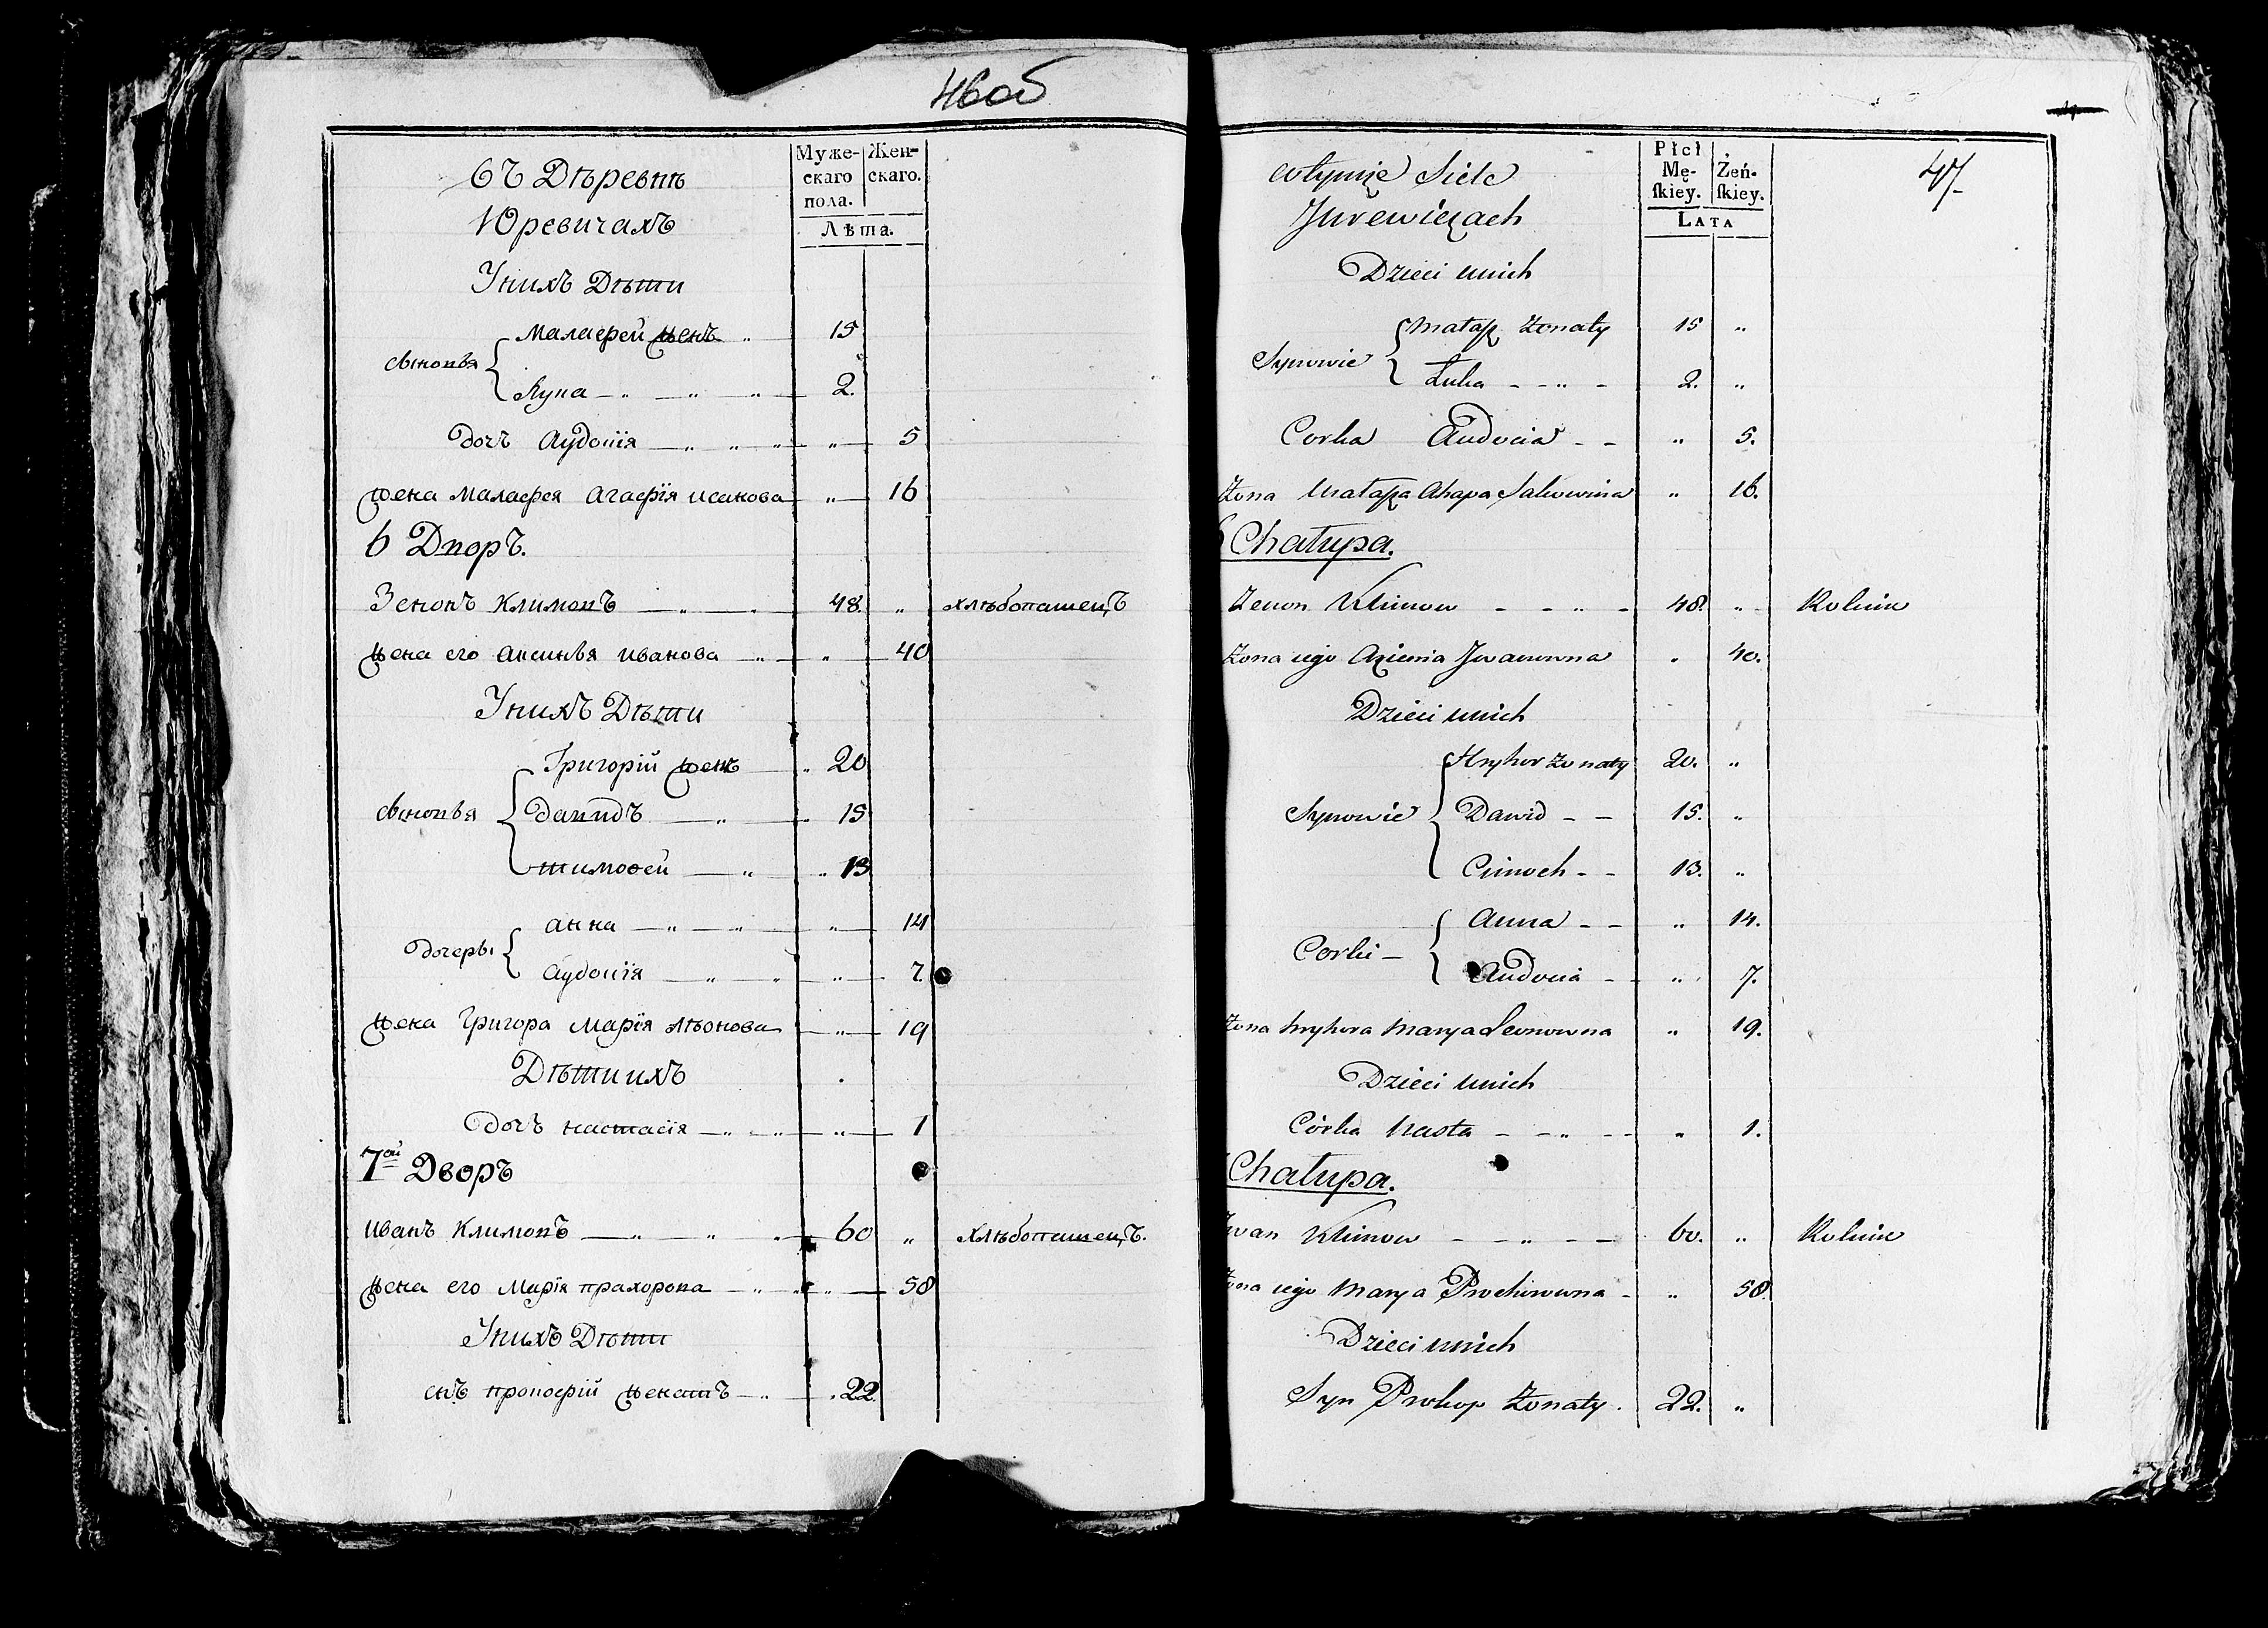 46об
въ Дѣревнѣ
Юревичахъ
Муже-
скаго
пола.
Жен-
скаго.
Лѣта.
Унихъ Дѣти
Сыновья
Малафей жен. „ 15
Лука — „ — „ „ 2.
дочъ Аудоція — „ „ „ „ 5
жена Малафея Агафія исакова „ 16
6 Дворъ.
Зенонъ Климовъ — „ — „ 48. „ хлѣбопашецъ
жена его Аксинья иванова — „ „ 40
Унихъ Дѣти
Сыновья
Григорій жен „ 20
Давидъ — „ 15
тимофей — „ „ 13
дочеры
анна — „ — „ „ 14
аудоція — „ „ „ 7.
жена Григора Марія лѣонова „ 19
Дѣти ихъ
дочъ настасія — „ — „ „ 1
7ой Дворъ
иванъ Климовъ — „ — „ „ 60 „ хлѣбопашецъ.
жена его Марія прахорова — „ „ „ 58
Унихъ Дѣти
снъ прокофій женатъ — „ „ 22.
47
Siele
Jurewiczach
Płci
Mę-
ſkiey.
Żeń-
ſkiey.
LATA
Dzieci unich
Synowie
Małafz żonaty 15 „
Łuka — — „ — 2. „
Corka Audocia — — „ 5.
Żona Małafza Ahapa „ 16.
6 Chałupa.
Zenon Klimow — — „ — 48. „ Rolnik
Żona iego Axienia Jwanowna „ 40.
Dzieci unich
Synowie
Hryhor żonaty 20. „
Dawid — — 15. „
Cimoch — — 13. „
Corki —
Anna — — „ 14.
Audocia — — „ 7.
Żona hryhora Marya Leonowna „ 19.
Dzieci unich
Córka Nasta — — „ — — „ 1.
Chałupa.
Iwan Klimow — — „ — — 60. „ Rolnik
Żona iego Marya Prochorowna — „ 58.
Dzieci unich
Syn Prokop żonaty. 22. „